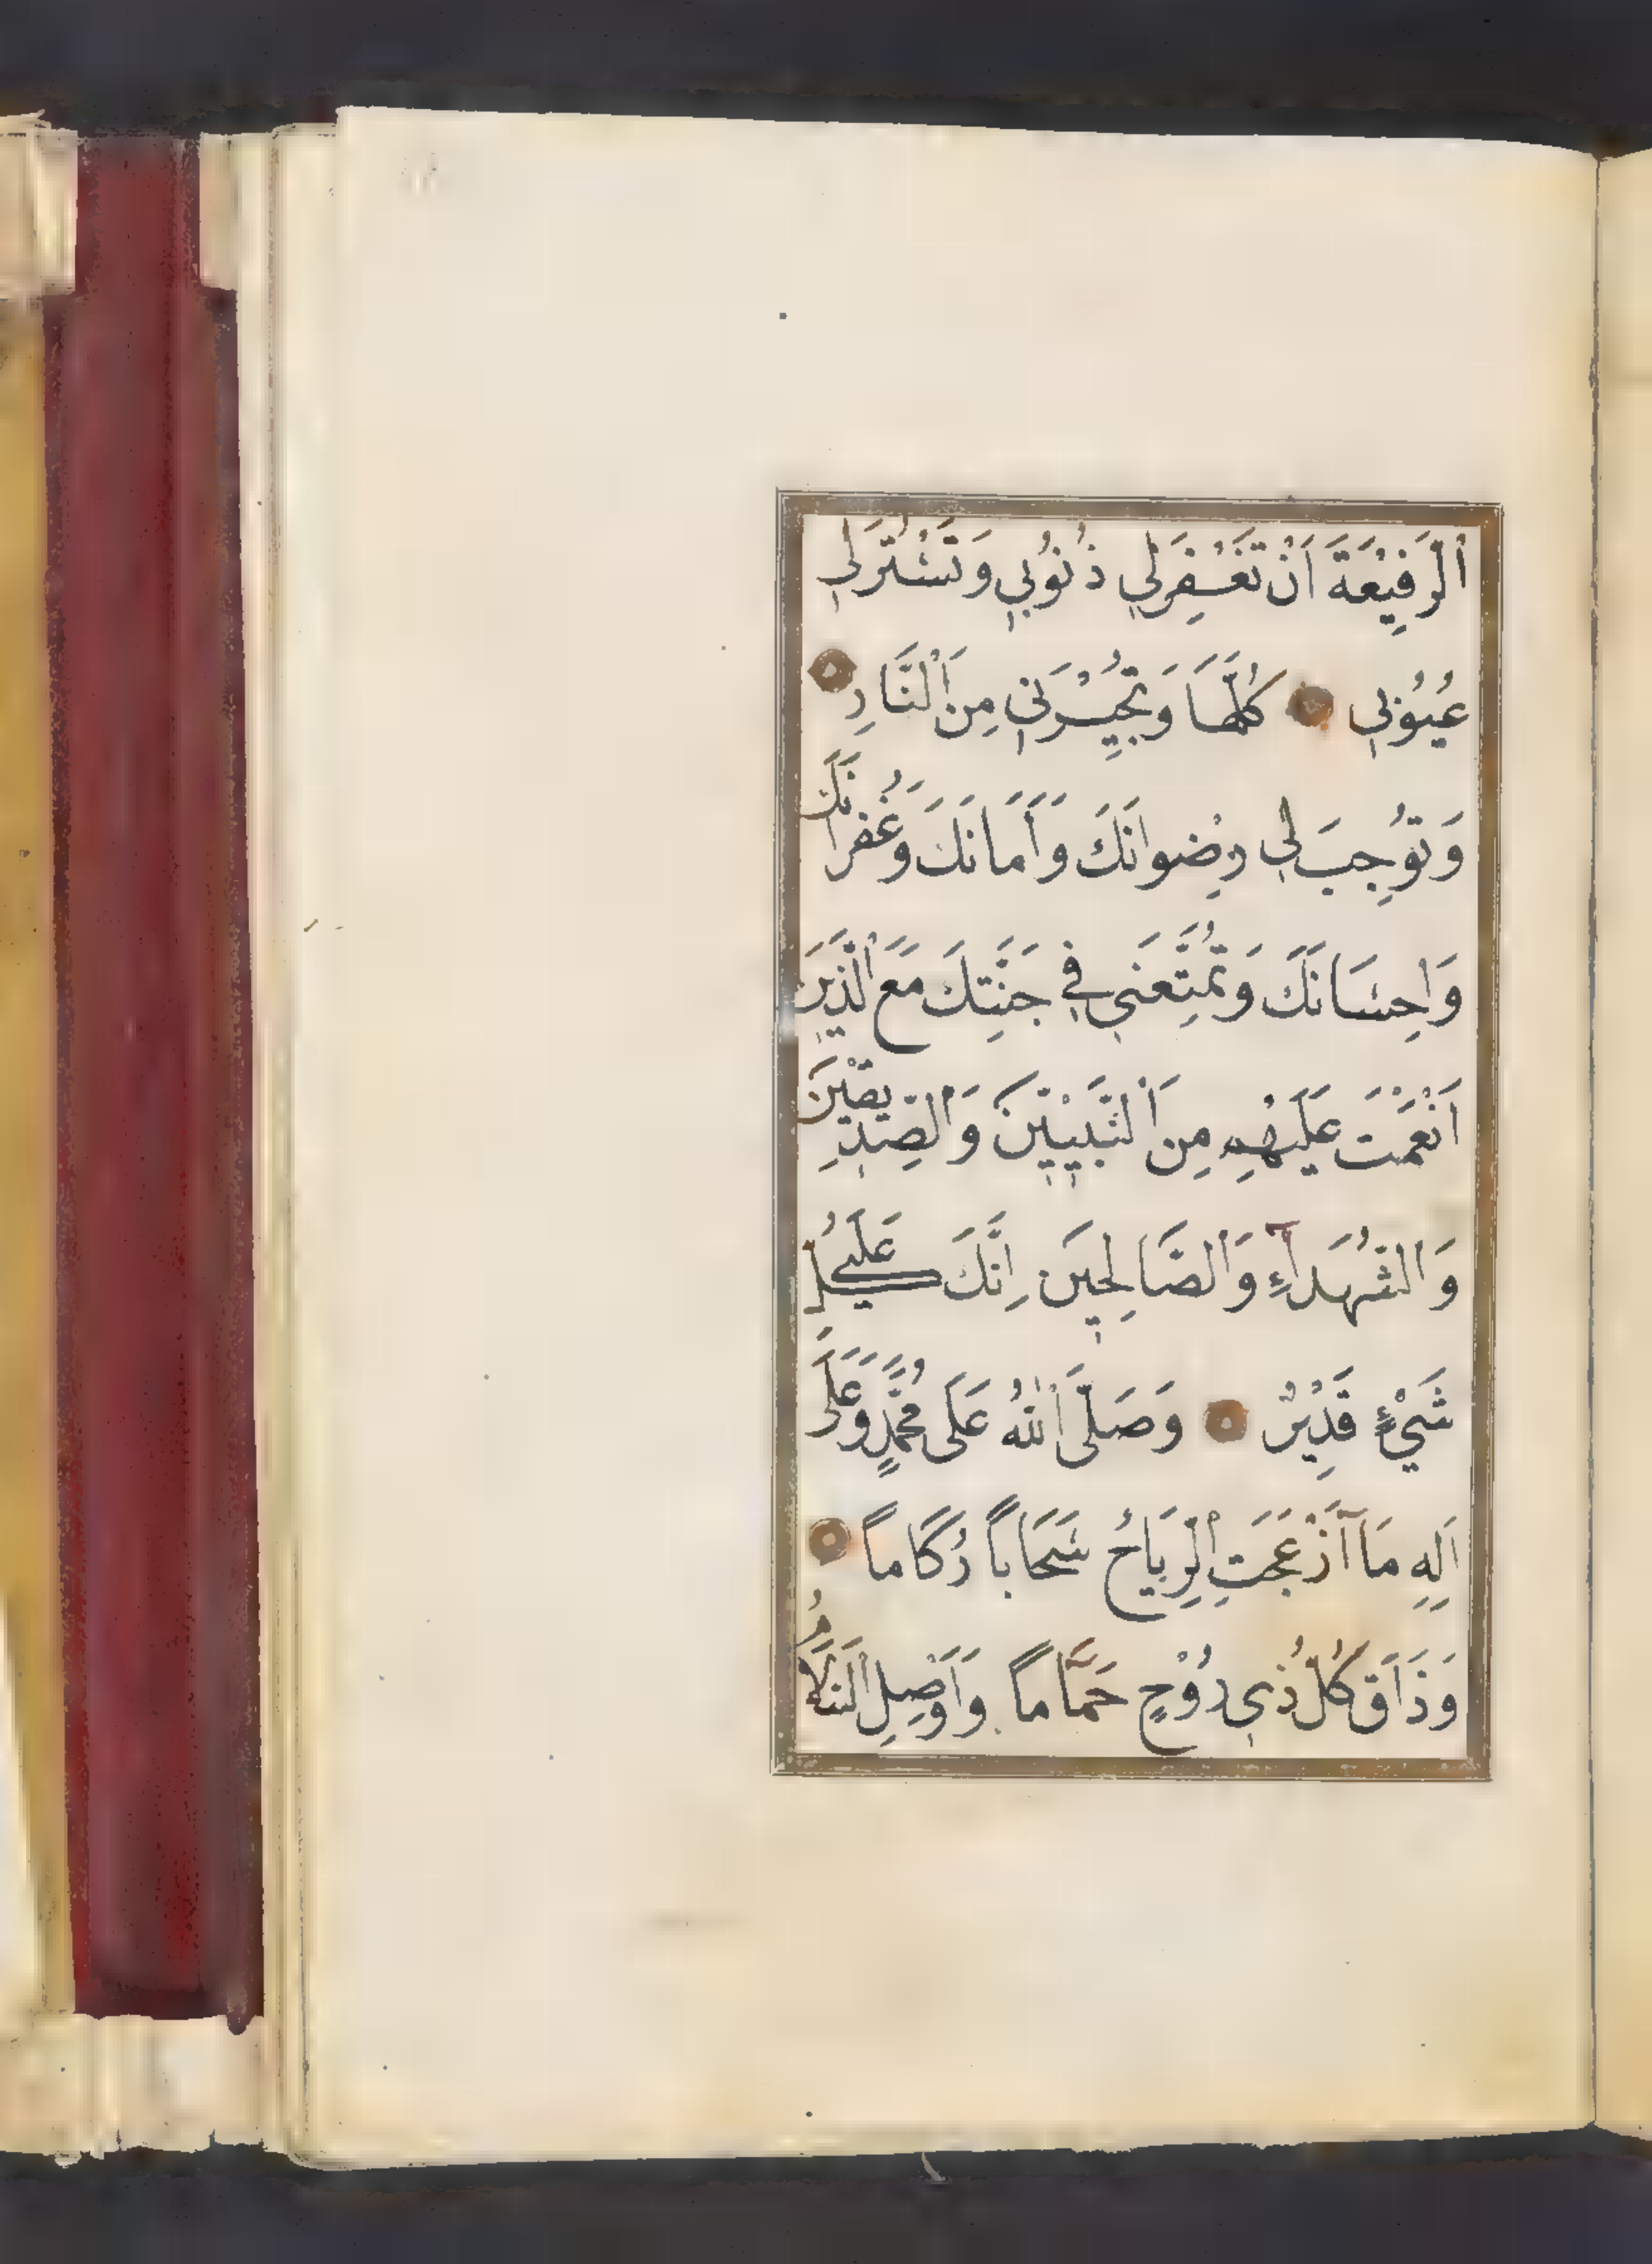 اَلرَّفِيْعَةَ اَنْ تَغْفِرَلِي ذُنُوْبِي وَتَسْتُرَلِي
عُيُوْبِي كُلَّهَا وَتُجِيْرَنِي مِنَ اَلْنَّارِ
وَتُوْجِبَ لِي رِضْوانَكَ وَأَمَانَكَ وَغُفْرانَكَ
وَاِحْسَانَكَ وَتُمَتِّعَنِي فِي جَنَّتِكَ مَعَ اْلَّذِيْنَ
اَنْعَمْتَ عَلَيْهِمْ مِنَ اْلنَّبِيِّيْنَ وَاْلصِّدِّيْقِيْنَ
وَاْلشُّهَدَآءِ وَاْلصَّالِحِيْنَ اِنَّكَ عَلَى كُلِّ
شَيْءٍ قَدِيْرٌ وَصَلَّى اللهُ عَلَى مُحَمَّدٍ وَعَلَى
اَلِهِ مَا اَزْعَجَتِ اْلرِّيَاحُ سَحَاباً رُكَاماً
وَذَاقَ كُلُّ ذِي رُوْحٍ حَمَاماً وَاَوْصِلِ اْلسَّلَامَ